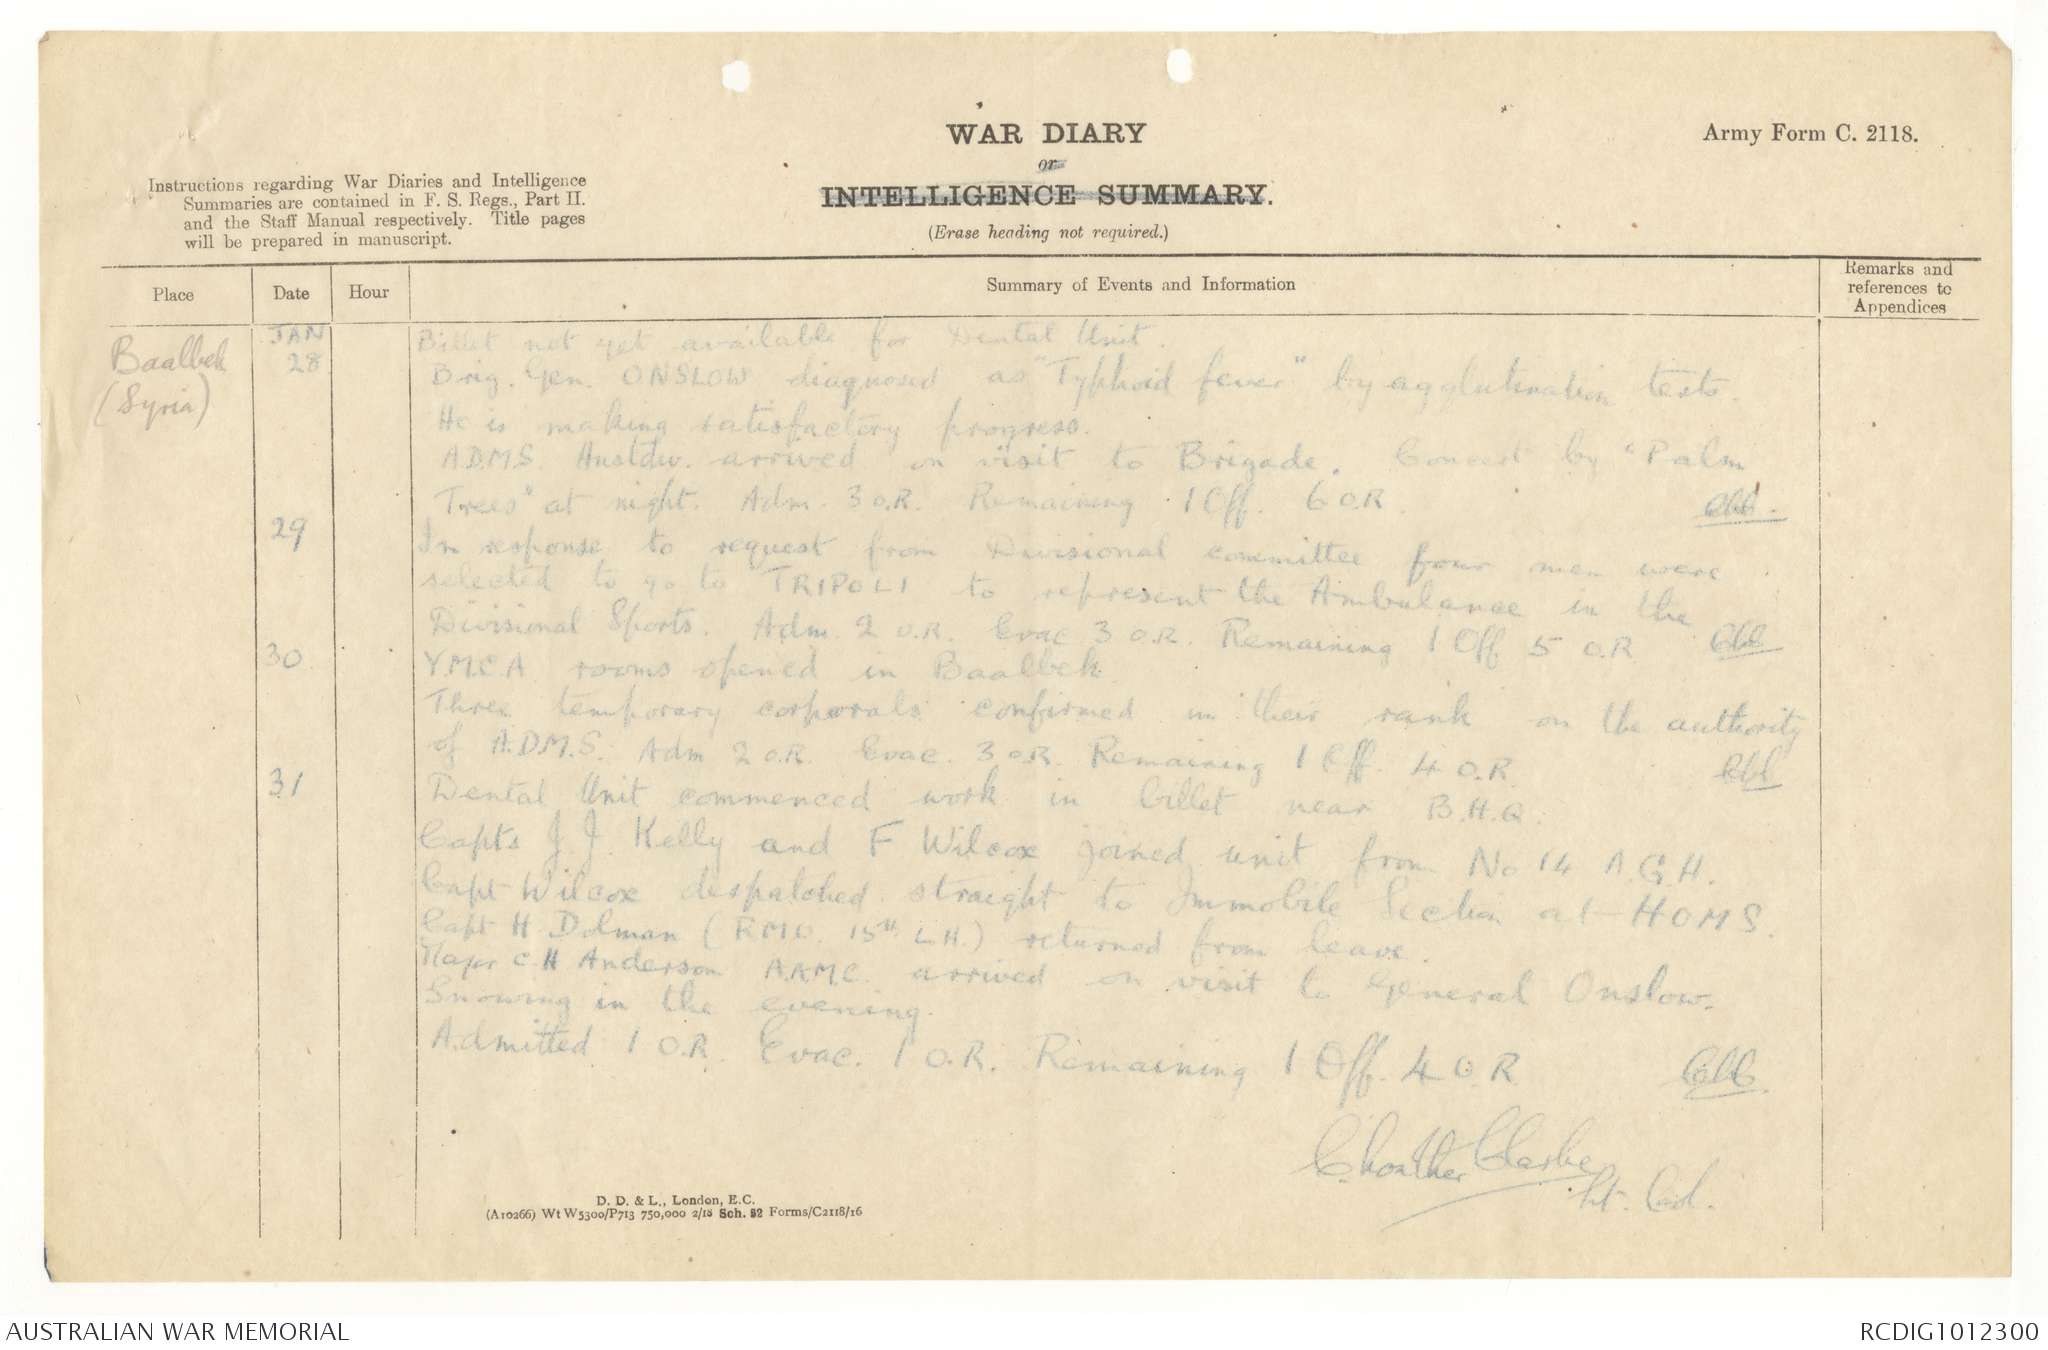 WAR DIARY
or
INTELLIGENCE SUMMARY.
(Erase heading not required.)
Army Form C. 2118.
Instructions regarding War Diaries and Intelligence
Summaries are contained in F. S. Regs., Part II.
and the Staff Manual respectively. Title pages
will be prepared in manuscript.
Place Date Hour Summary of Events and Information Remarks and references to Appendices
Baalbek
(Syria)
JAN
28 Billet not yet available for Dental Unit.
Brig. Gen. ONSLOW diagnosed as "Typhoid fever" by agglutination tests.
He is making satisfactory progress.
A.D.M.S. arrived on visit to Brigade. Concert by "Palm
Trees" at night. Adm. 3 O.R. Remaining 1 Off. 6 O.R.
29 In response to request from Divisional committee four men were
selected to go to TRIPOLI to represent the Ambulance in the
Divisional Sports. Adm. 2 O.R. Evac 3 O.R. Remaining 1 Off 5 O.R
30 Y.M.C.A rooms opened in Baalbek.
Three temporary corporals confirmed in their rank on the authority
of A.D.M.S. Adm 2 O.R. Evac. 3 O.R. Remaining 1 Off. 4 O.R.
31 Dental Unit commenced work in billet near B.H.Q.
Capts J. J. Kelly and F Wilcox joined unit from No 14 A.G.H.
Capt Wilcox despatched straight to Immobile Section at HOMS.
Capt H Dolman (R.M.O. 15TH L.H.) returned from leave.
Major C. H Anderson A.A.M.C. arrived on visit to General Onslow.
Snowing in the evening.
Admitted 1 O.R. Evac. 1 O.R. Remaining 1 Off. 4 O.R
Clarke
Lt. Col.
D. D. & L., London, E.C.
(A10266) Wt W5300/P713 750,000 2/18 Sch. 52 Forms/C2118/16
AUSTRALIAN WAR MEMORIAL
RCDIG1012300